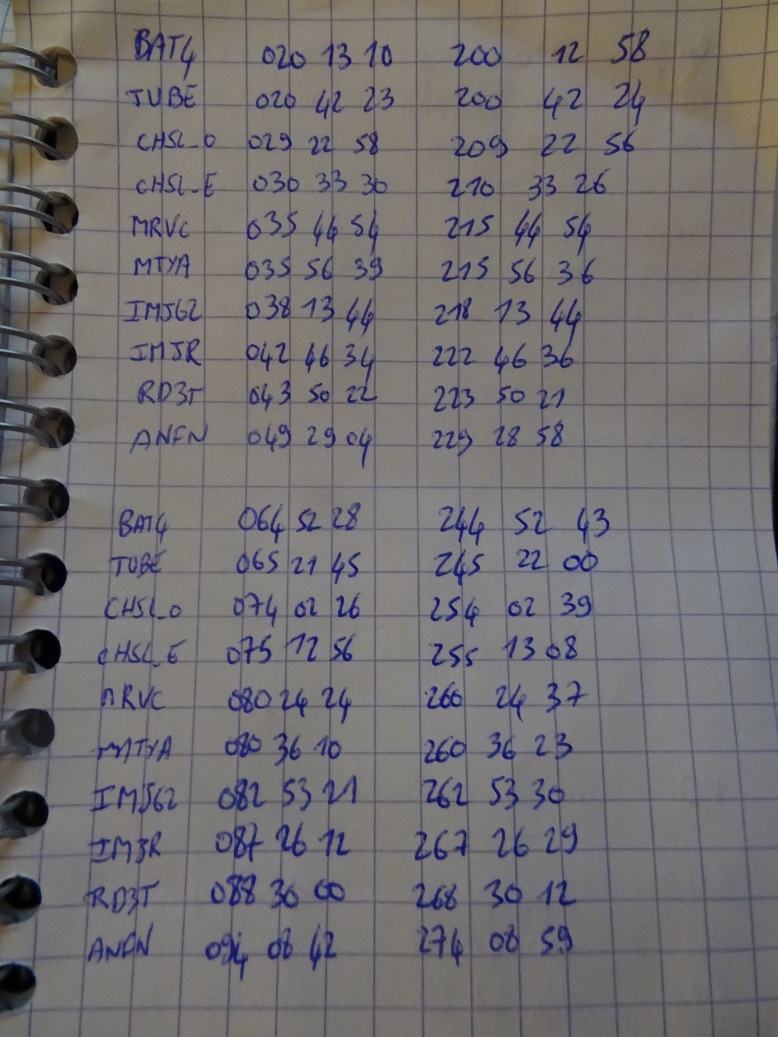 BAT4 020 13 10 200 12 58
TUBE 020 42 23 200 42 24
CHSL_O 029 22 58 209 22 56
CHSL_E 030 33 30 210 33 26
MRVC 035 44 54 215 44 54
MTYA 035 56 39 215 56 36
IMJ62 038 13 44 218 13 44
IMJR 042 46 34 222 46 36
RD3T 043 50 22 223 50 21
ANFN 049 29 04 229 28 58
BAT4 064 52 28 244 52 43
TUBE 065 21 45 245 22 00
CHSL_O 074 02 26 254 02 39
CHSL_E 075 12 56 255 13 08
MRVC 080 24 24 260 24 37
MTYA 080 36 10 260 36 23
IMJ62 082 53 21 262 53 30
IMJR 087 26 12 267 26 29
RD3T 088 30 00 268 30 12
ANFN 094 08 42 274 08 59